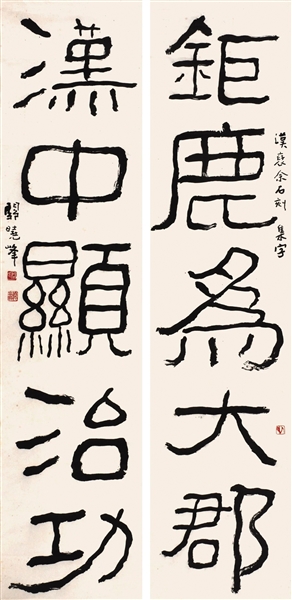 鉅鹿為大郡
漢襃余石刻 集字
漢中顯治功
曉峯